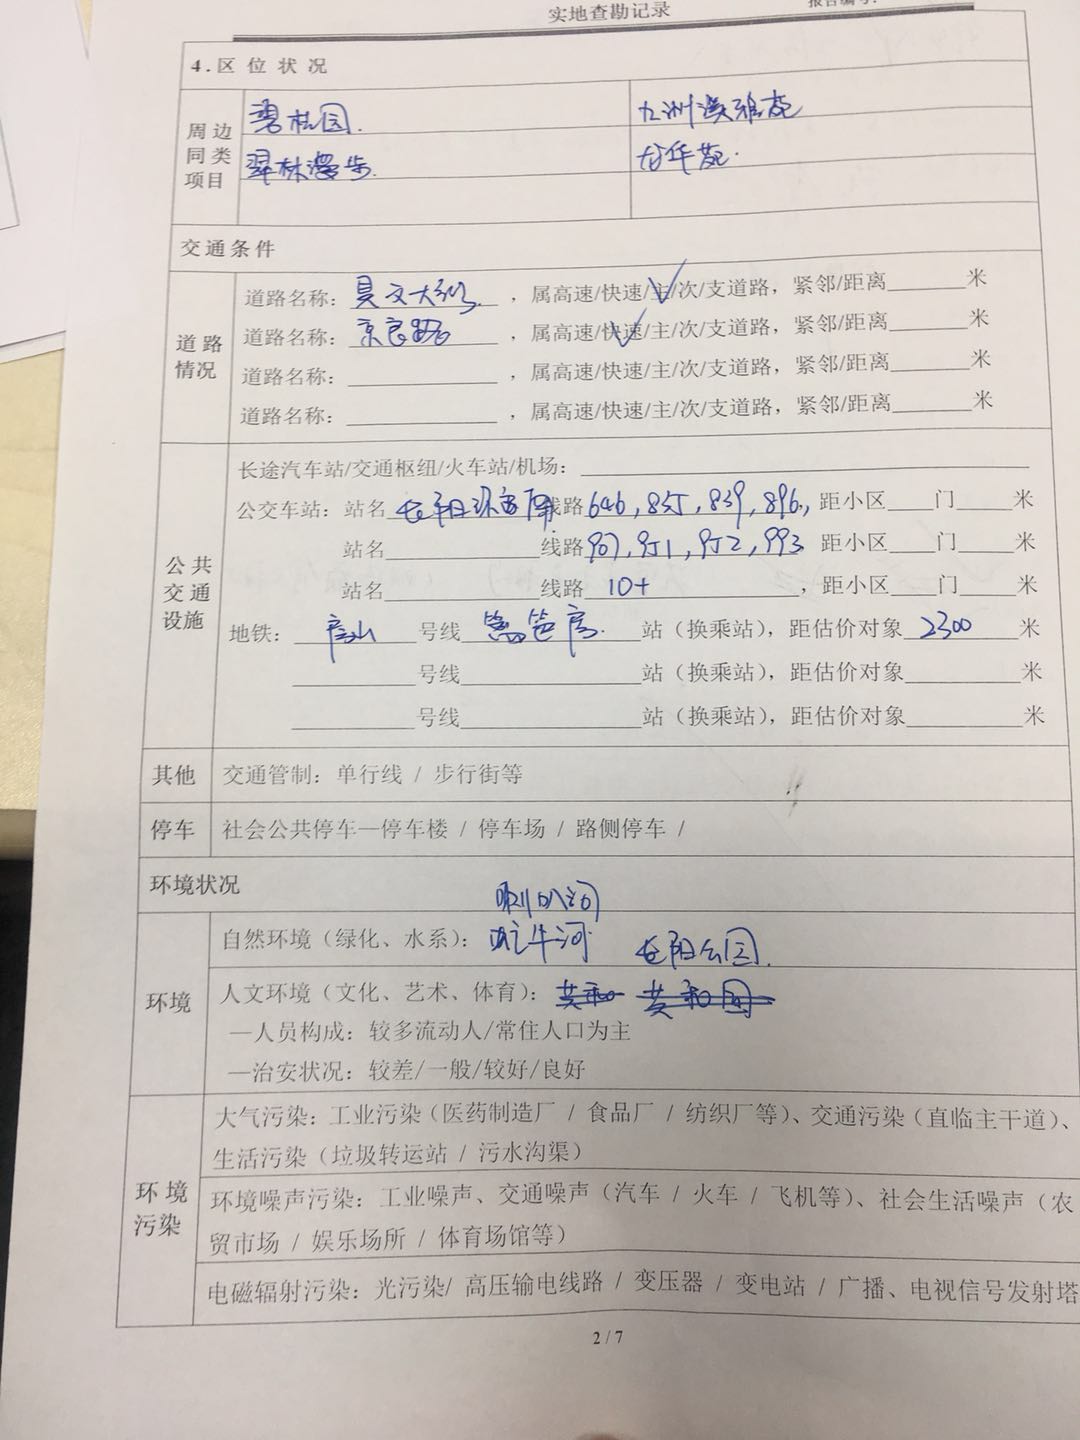 实地查勘记录
报告编号:
4.区 位 状 况
周边同类项目
碧桂园. 九洲溪雅苑
翠林漫步. 长华苑.
交通条件
道路情况
道路名称: 昊天大街. ,属高速/快速/主/次/支道路,紧邻/距离______米
道路名称: 京良路 ,属高速/快速/主/次/支道路,紧邻/距离______米
道路名称:____________ ,属高速/快速/主/次/支道路,紧邻/距离______米
道路名称:____________ ,属高速/快速/主/次/支道路,紧邻/距离______米
公共交通设施
长途汽车站/交通枢纽/火车站/机场:____________
公交车站: 站名 长阳环岛 线路 646, 835, 839, 896., 距小区____门____米
站名____________线路 907, 951, 952, 993 距小区____门____米
站名____________线路 10+ ,距小区____门____米
地铁: 房山 号线 篱笆房. 站(换乘站),距估价对象 2300 米
______号线____________站(换乘站),距估价对象______米
______号线____________站(换乘站),距估价对象______米
其他 交通管制:单行线 / 步行街等
停车 社会公共停车—停车楼 / 停车场 / 路侧停车 /
环境状况
环境
喇叭河
自然环境(绿化、水系): 牤牛河 长阳公园.
人文环境(文化、艺术、体育):
—人员构成:较多流动人/常住人口为主
—治安状况:较差/一般/较好/良好
环境污染
大气污染:工业污染(医药制造厂 / 食品厂 / 纺织厂等)、交通污染(直临主干道)、
生活污染(垃圾转运站 / 污水沟渠)
环境噪声污染:工业噪声、交通噪声(汽车 / 火车 / 飞机等)、社会生活噪声(农
贸市场 / 娱乐场所 / 体育场馆等)
电磁辐射污染:光污染/ 高压输电线路 / 变压器 / 变电站 / 广播、电视信号发射塔
2 / 7